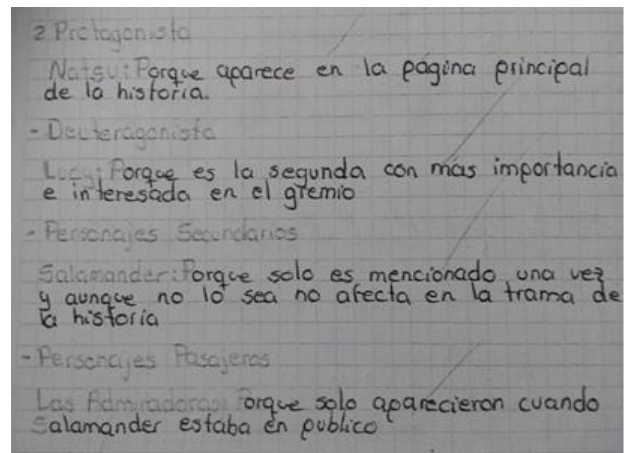 2 Protagonista
Natsu: Porque aparece en la página principal
de la historia.
- Deuteragonista
Lucy: Porque es la segunda con mas importancia
e interesada en el gremio
- Personajes Secundarios
Salamander: Porque solo es mencionado una vez
y aunque no lo sea no afecta en la trama de
la historia
- Personajes Pasajeros
Las Admiradoras: Porque solo aparecieron cuando
Salamander estaba en publico